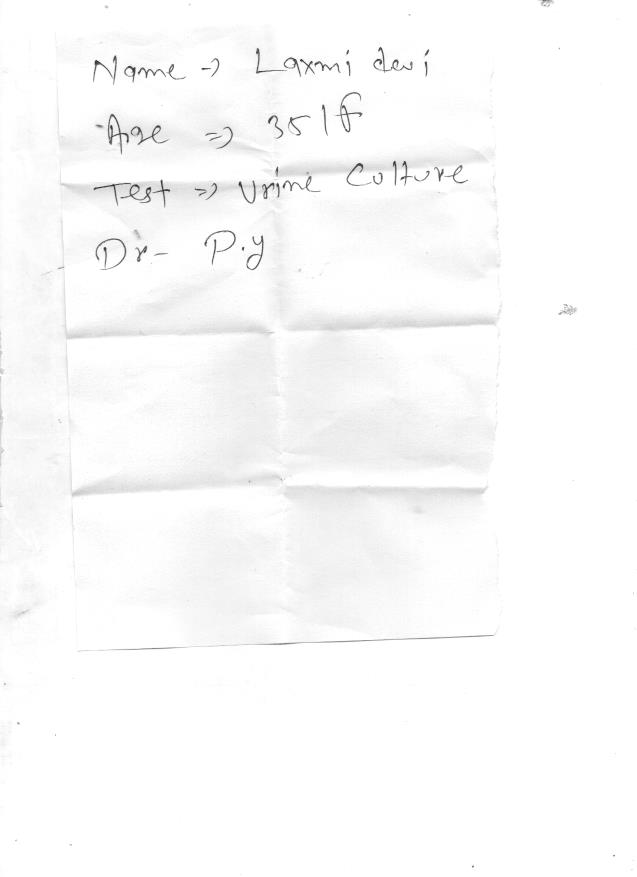 Name → Laxmi devi
Age ⇒ 35/f
Test ⇒ Urine Culture
Dr- P.y